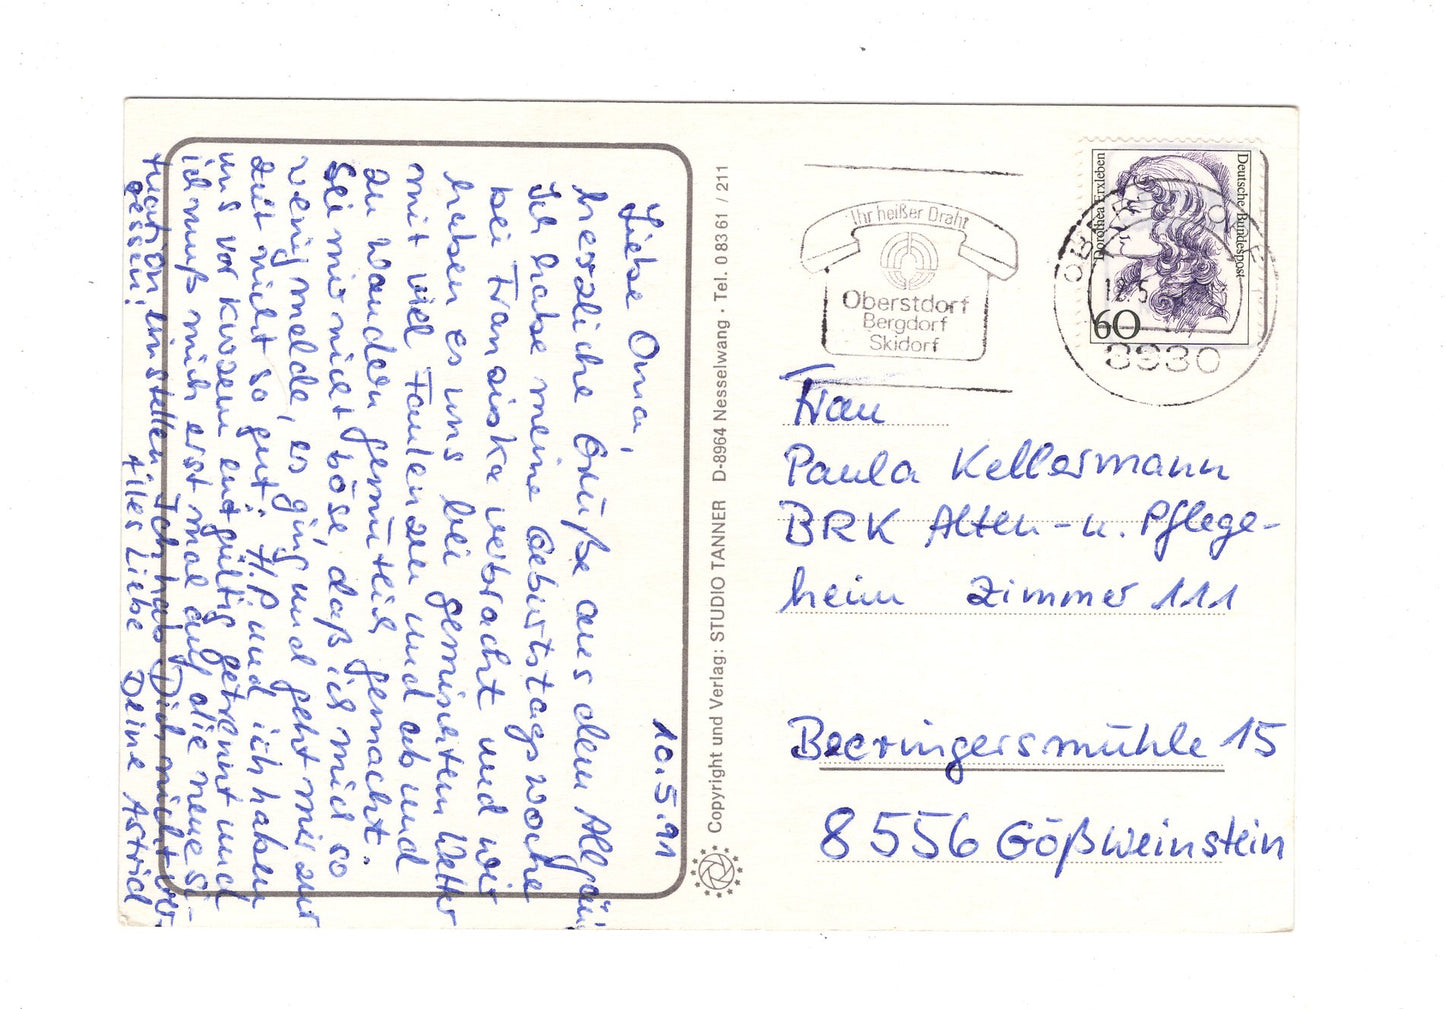 10.5.91
Liebe Oma,
herzliche Grüße aus dem Allgäu!
Ich habe meine Geburtstagswoche
bei Franziska verbracht und wir
haben es uns bei gemischtem Wetter
mit viel Faulenzen und ab und
zu wandern gemütlich gemacht.
Sei mir nicht böse, daß ich mich so
wenig melde, es ging und geht mir zur
Zeit nicht so gut. H.P. und ich haben
uns vor kurzem entgültig getrennt und
ich muß mich erst mal auf die neue Si-
tuation einstellen. Ich hab Dich nicht ver-
gessen! Alles Liebe Deine Astrid
Copyright und Verlag: STUDIO TANNER D-8964 Nesselwang · Tel. 0 83 61 / 211
Ihr heißer Draht
Oberstdorf
Bergdorf
Skidorf
Dorothea Erxleben
Deutsche Bundespost
60
8980
Frau
Paula Kellermann
BRK Alten- u. Pflege-
heim Zimmer 111
Beeringersmühle 15
8556 Gößweinstein